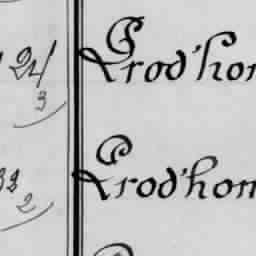 24 Prod'hom
3
32 Prod'hom
2